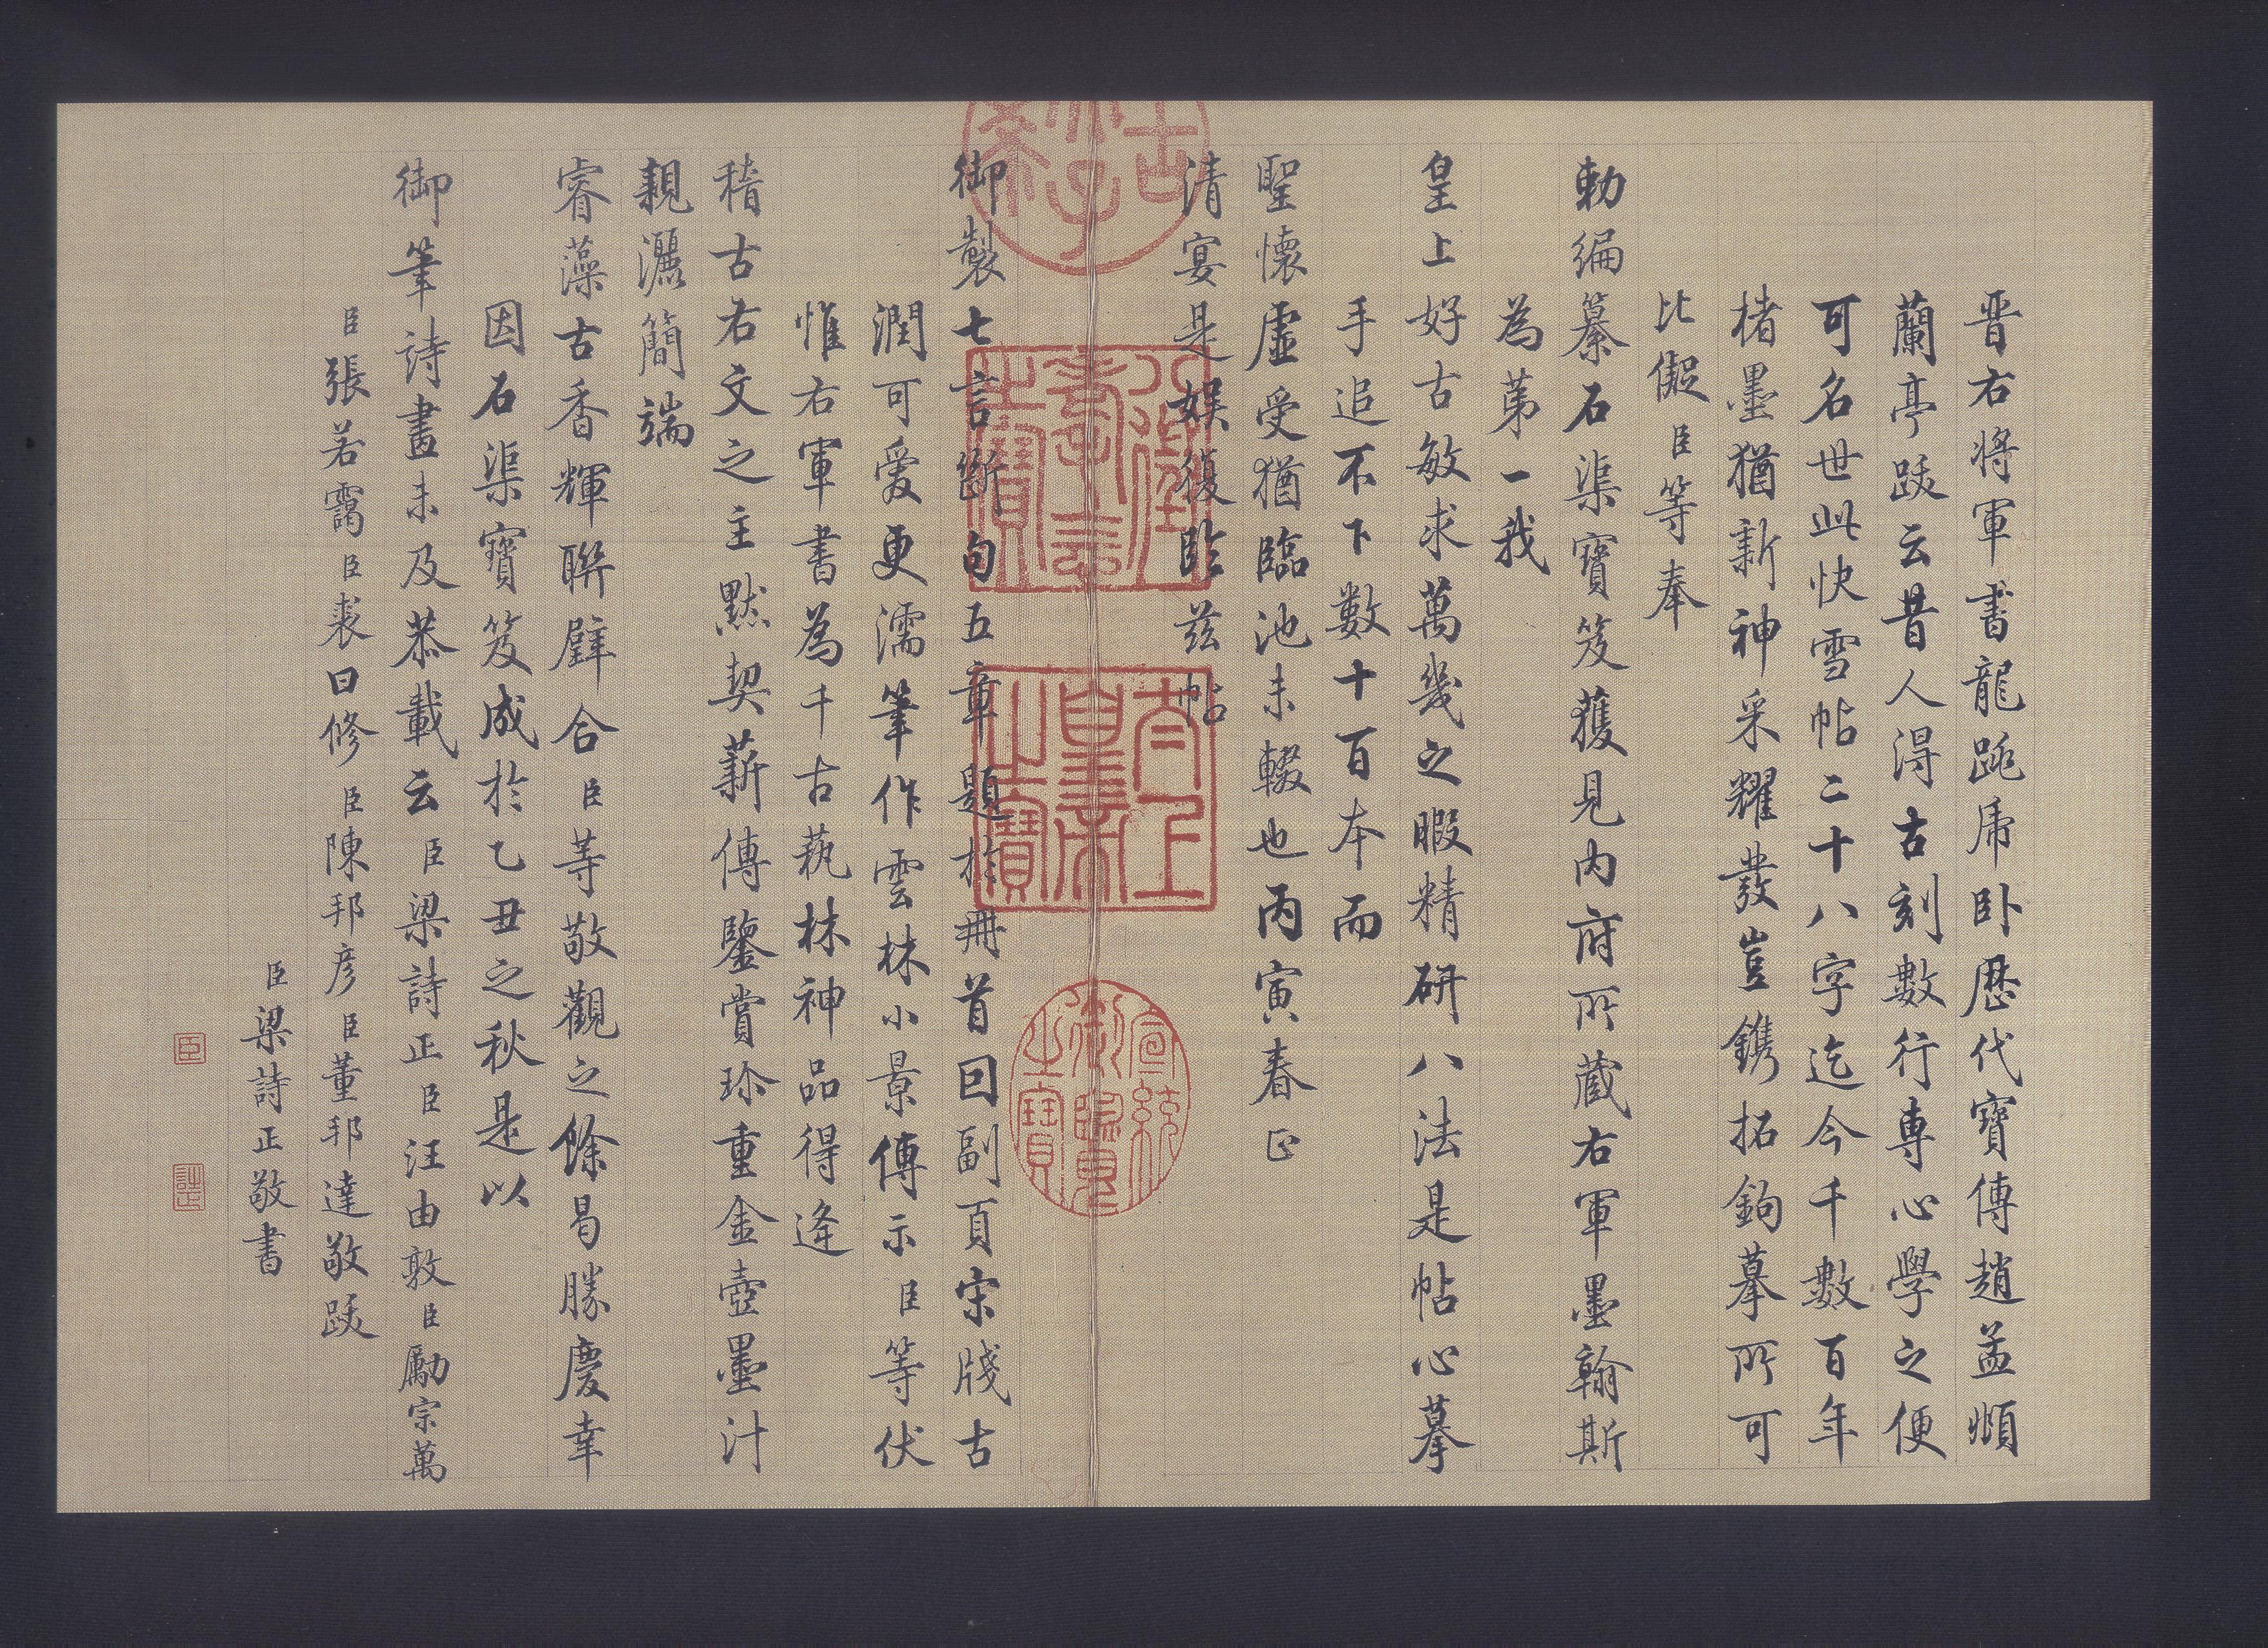 晋右將軍書龍跳虎卧歴代寶傳趙孟頫
蘭亭跋云昔人得古刻數行專心學之便
可名世此快雪帖二十八字迄今千數百年
楮墨猶新神采耀發豈鐫拓鉤摹所可
比儗臣等奉
勅編纂石渠寶笈獲見内府所蔵右軍墨翰斯
為第一我
皇上好古敏求萬幾之暇精研八法是帖心摹
手追不下數十百本而
聖懷虛受猶臨池未輟也丙寅春正
清宴是娱復臨兹帖
御製七言斷句五章題於冊首回副頁宋牋古
潤可愛更濡筆作雲林小景傳示臣等伏
惟右軍書為千古藝林神品得逢
稽古右文之主默契薪傳鑒賞珍重金壺墨汁
親灑簡端
睿藻古香輝聯璧合臣等敬觀之餘曷勝慶幸
因石渠寶笈成於乙丑之秋是以
御筆詩畫未及恭載云臣梁詩正臣汪由敦臣勵宗萬
臣張若靄臣裘曰修臣陳邦彦臣董邦達敬跋
臣梁詩正敬書
八徵耄念之寶
太上皇帝之寶
宣統御覽之寶
臣